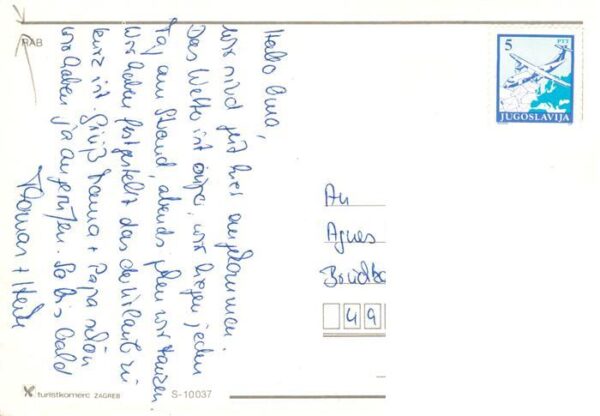 RAB
Hallo Oma,
wir sind jetzt hier angekommen.
Das Wetter ist super, wir liegen jeden
Tag am Strand, abends gehen wir tanzen
Wir haben festgestellt das der Urlaub zu
kurz ist. Grüß Mama + Papa schön
wir haben ja angerufen. So bis bald
Thomas +
5 PTT
JUGOSLAVIJA
An
Agnes
49
turistkomerc ZAGREB
S-10037